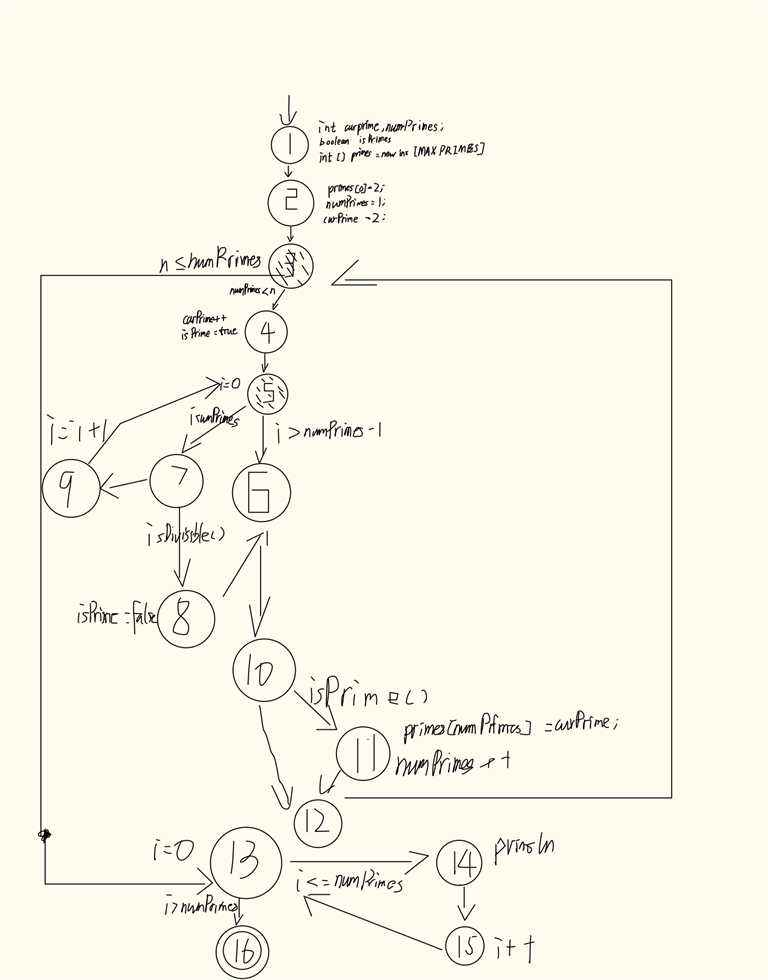 1
int curprime,numPrimes;
boolean isPrimes
int [] primes = new int [MAX PRIMES]
2
primes[0]=2;
numPrimes = 1;
curPrime = 2;
n ≤ numPrimes
numPrimes < n
curPrime++
isPrime = true
4
i=0
5
i = i + 1
i > numPrimes - 1
9
7
6
isDivisible()
isPrime = false
8
10
isPrime()
11
primes[numPrimes] = curPrime;
numPrimes ++
12
i=0
13
14
println
i <= numPrimes
i > numPrimes
16
15
i++